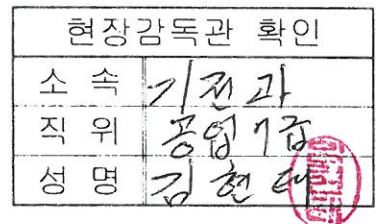 현장감독관 확인
소 속 기전과
직 위 공업7급
성 명 김현태